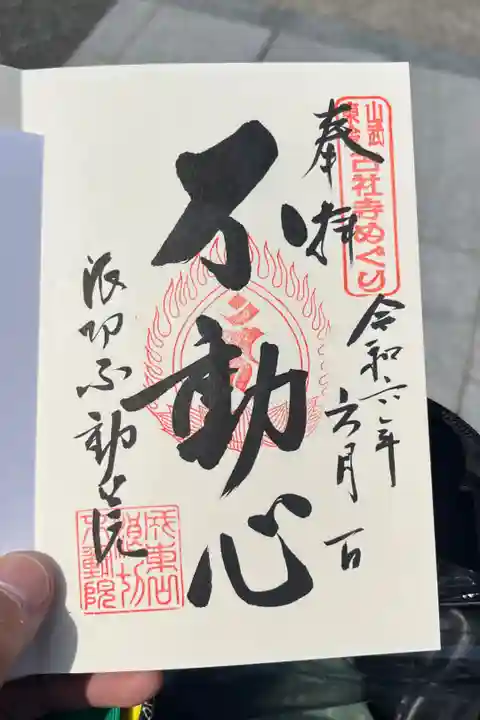 山武
東金
古社寺めぐり
奉拝
令和六年
六月一日
不動心
浪切不動院
成東山
浪切
不動院